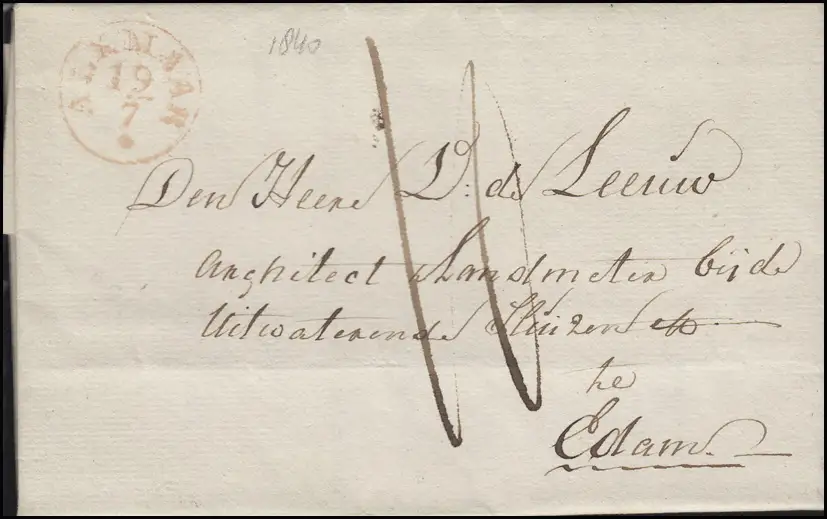 1840
ALKMAAR
19
7
Den Heere D: de Leeuw
Arghitect & Landmeter bij de
Uitwaterende Sluizen &c
te
Edam.